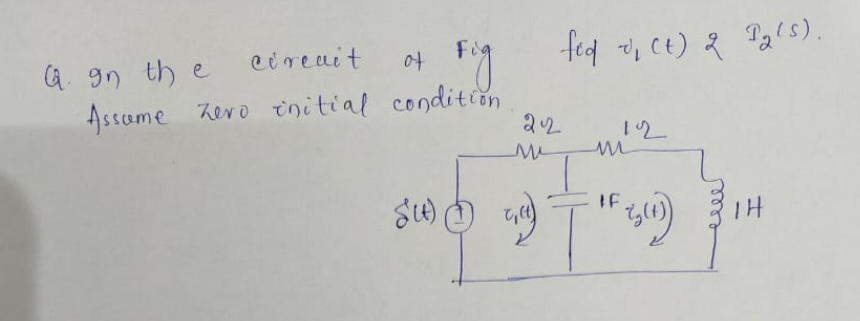 Q. In the circuit of Fig find i₁(t) & I₂(s).
Assume zero initial condition.
2Ω 1Ω
δ(t) i₁(t) 1F i₂(t) 1H